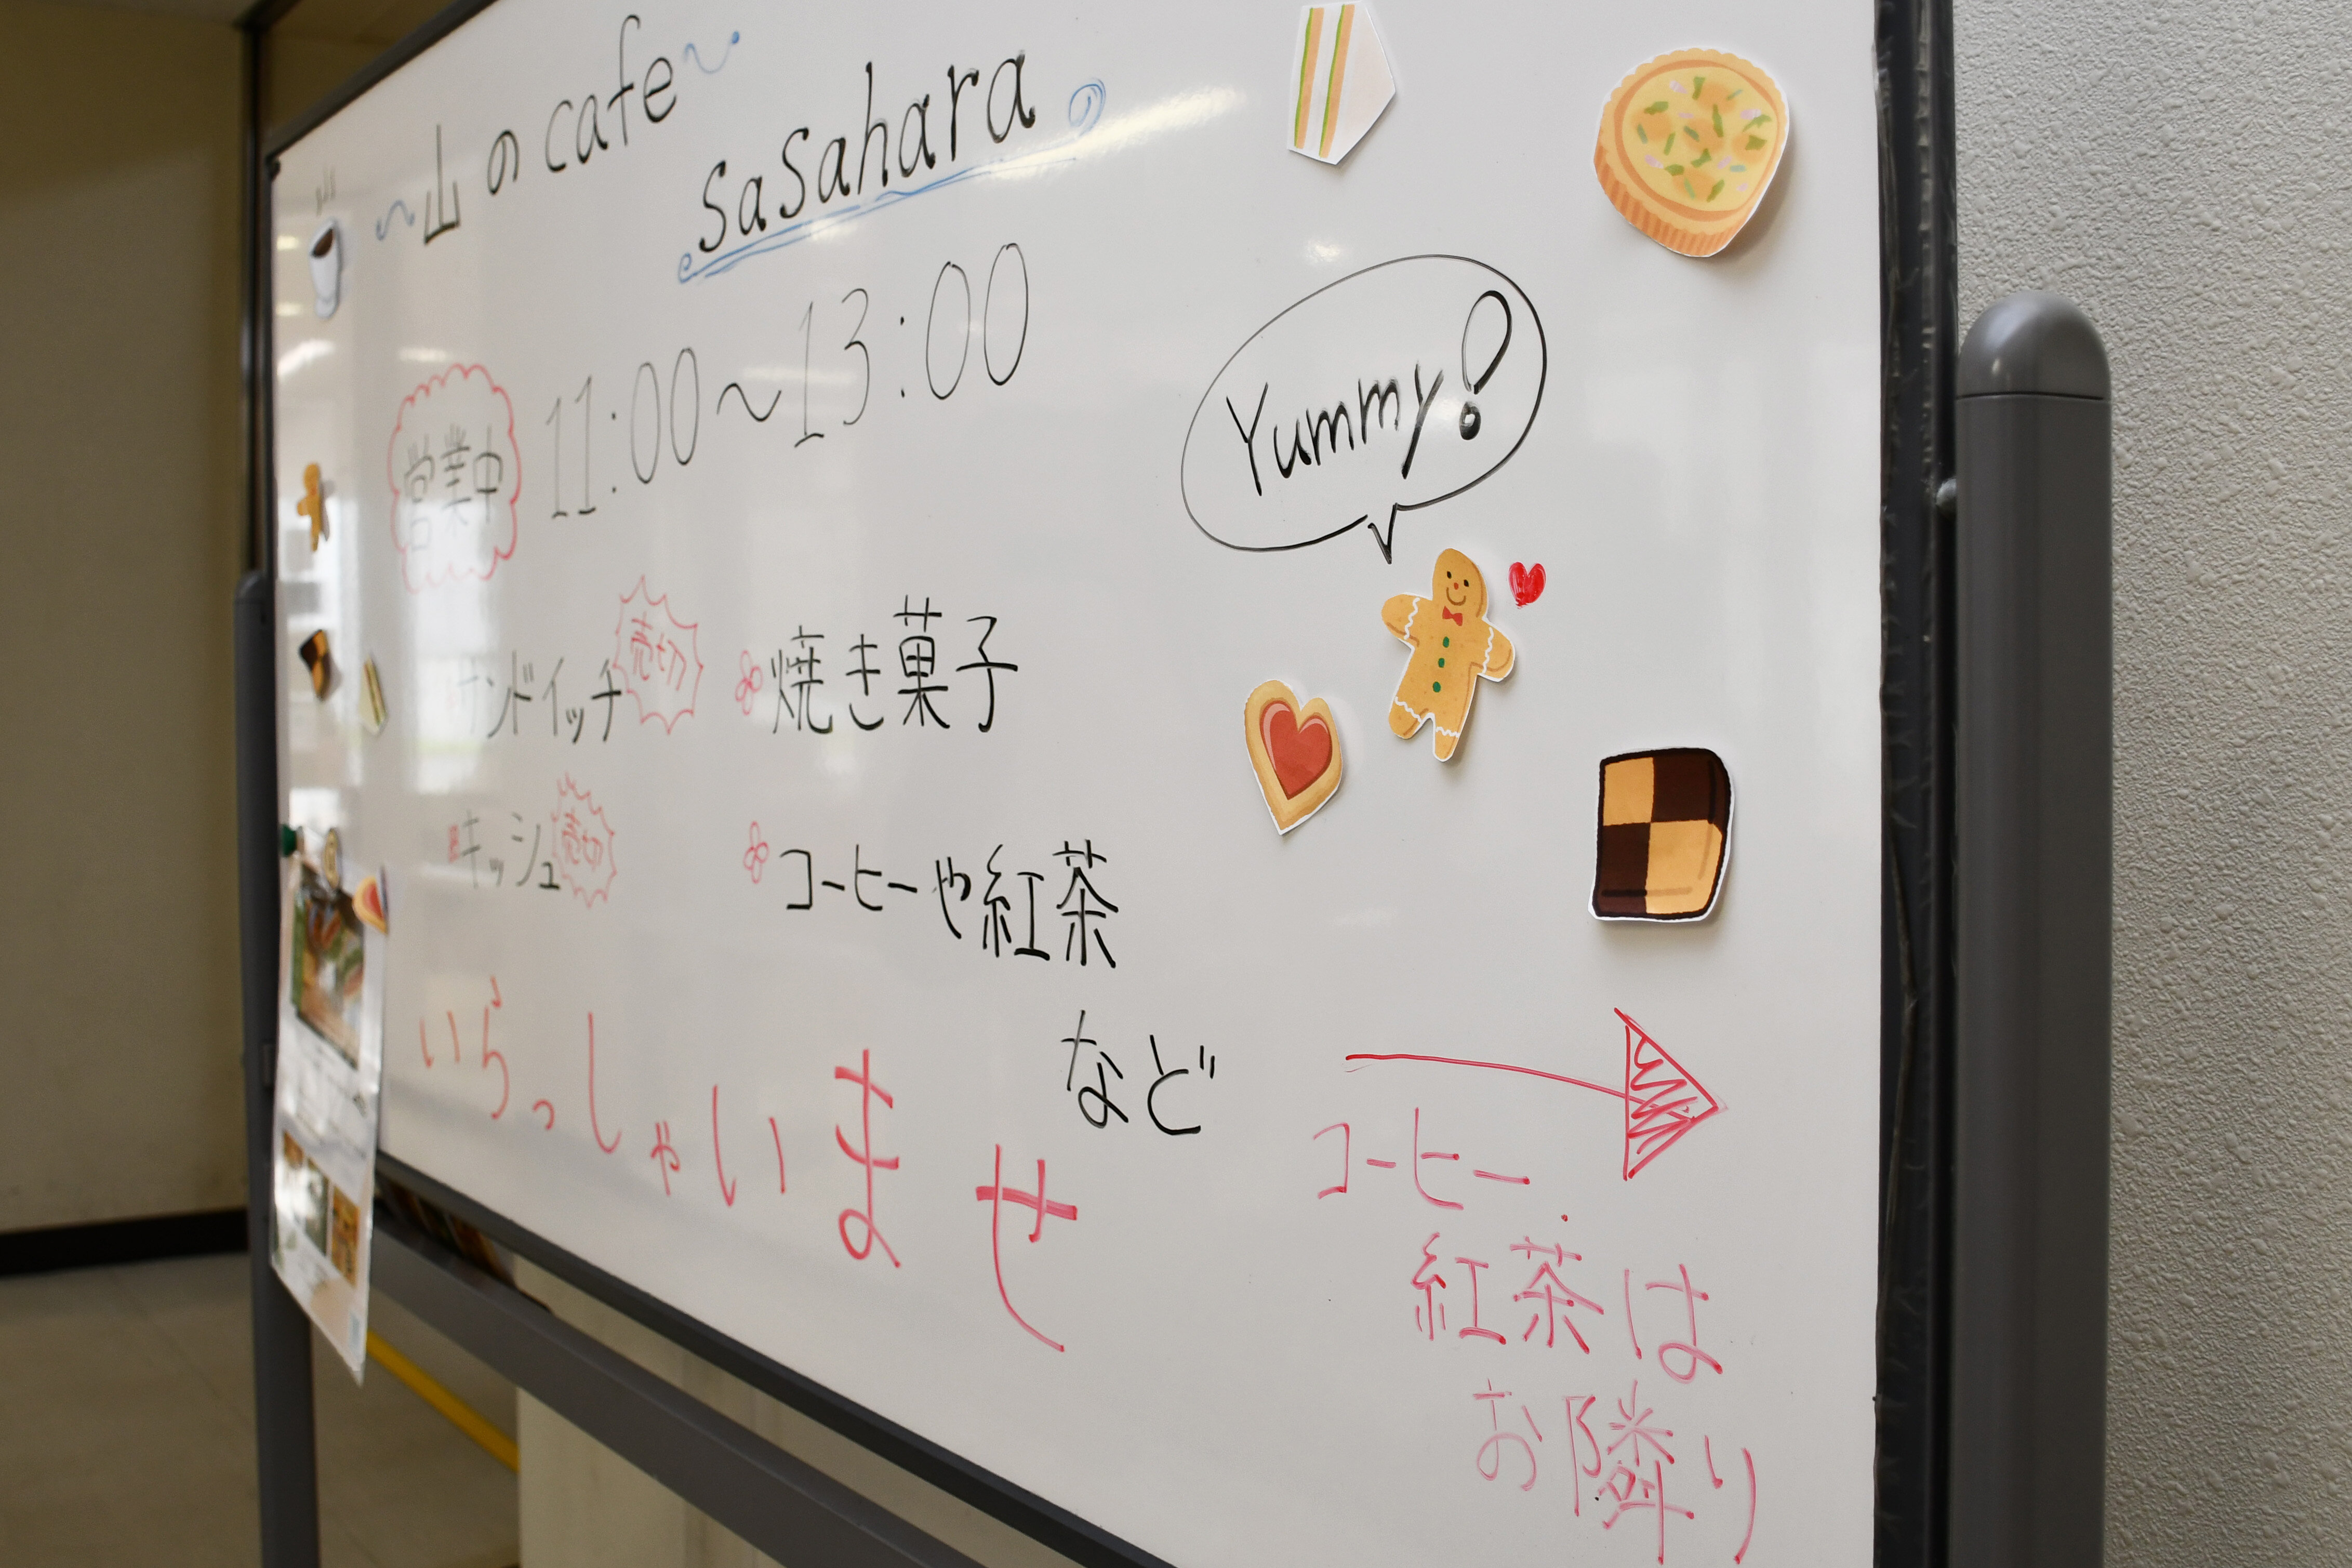 ～山のcafe～
Sasahara
営業中 11:00～13:00
Yummy!
サンドイッチ 売切
焼き菓子
キッシュ 売切
コーヒーや紅茶
など
いらっしゃいませ
コーヒー
紅茶は
お隣り